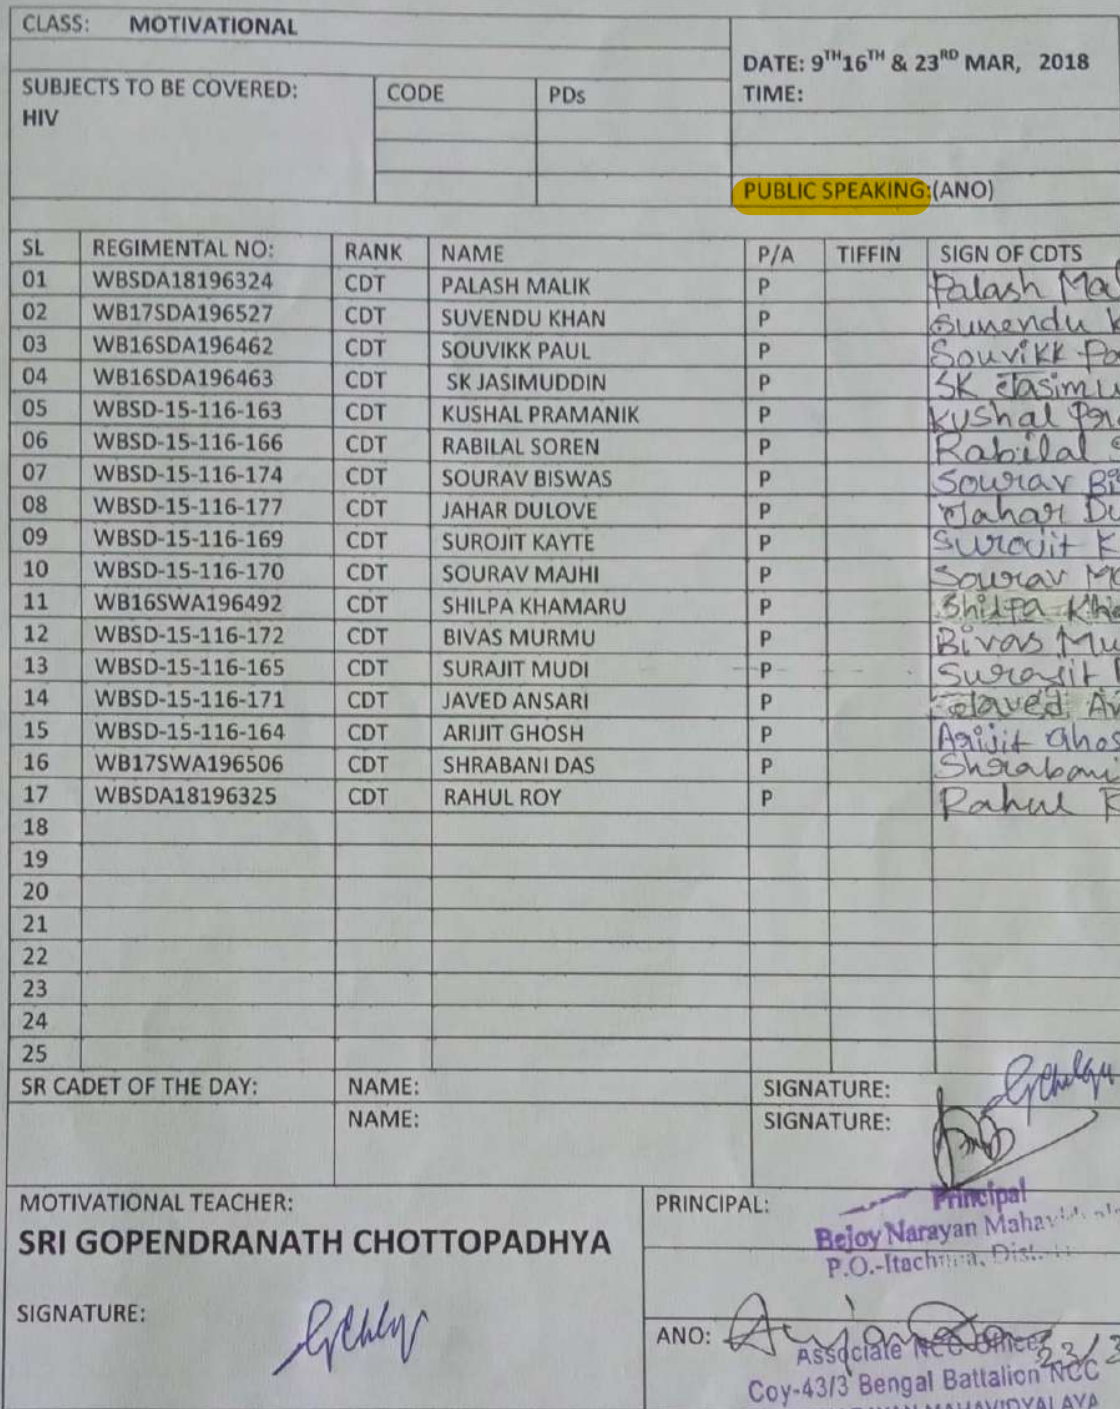 CLASS: MOTIVATIONAL
DATE: 9TH16TH & 23RD MAR, 2018
SUBJECTS TO BE COVERED: CODE PDs TIME:
HIV
PUBLIC SPEAKING:(ANO)
SL REGIMENTAL NO: RANK NAME P/A TIFFIN SIGN OF CDTS
01 WBSDA18196324 CDT PALASH MALIK P Palash
02 WB17SDA196527 CDT SUVENDU KHAN P Suvendu
03 WB16SDA196462 CDT SOUVIKK PAUL P Souvikk
04 WB16SDA196463 CDT SK JASIMUDDIN P SK
05 WBSD-15-116-163 CDT KUSHAL PRAMANIK P Kushal
06 WBSD-15-116-166 CDT RABILAL SOREN P Rabilal
07 WBSD-15-116-174 CDT SOURAV BISWAS P Sourav
08 WBSD-15-116-177 CDT JAHAR DULOVE P Jahar
09 WBSD-15-116-169 CDT SUROJIT KAYTE P Surojit
10 WBSD-15-116-170 CDT SOURAV MAJHI P Sourav
11 WB16SWA196492 CDT SHILPA KHAMARU P Shilpa
12 WBSD-15-116-172 CDT BIVAS MURMU P Bivas
13 WBSD-15-116-165 CDT SURAJIT MUDI P Surajit
14 WBSD-15-116-171 CDT JAVED ANSARI P Javed
15 WBSD-15-116-164 CDT ARIJIT GHOSH P Arijit
16 WB17SWA196506 CDT SHRABANI DAS P Shrabani
17 WBSDA18196325 CDT RAHUL ROY P Rahul
18
19
20
21
22
23
24
25
SR CADET OF THE DAY: NAME: SIGNATURE:
NAME: SIGNATURE:
MOTIVATIONAL TEACHER: PRINCIPAL:
Principal
SRI GOPENDRANATH CHOTTOPADHYA
Bejoy Narayan
P.O.-Itachuna, Dist.
SIGNATURE:
ANO:
Associate NCC Officer
23/3
Coy-43/3 Bengal Battalion NCC
MAHAVIDYALAYA